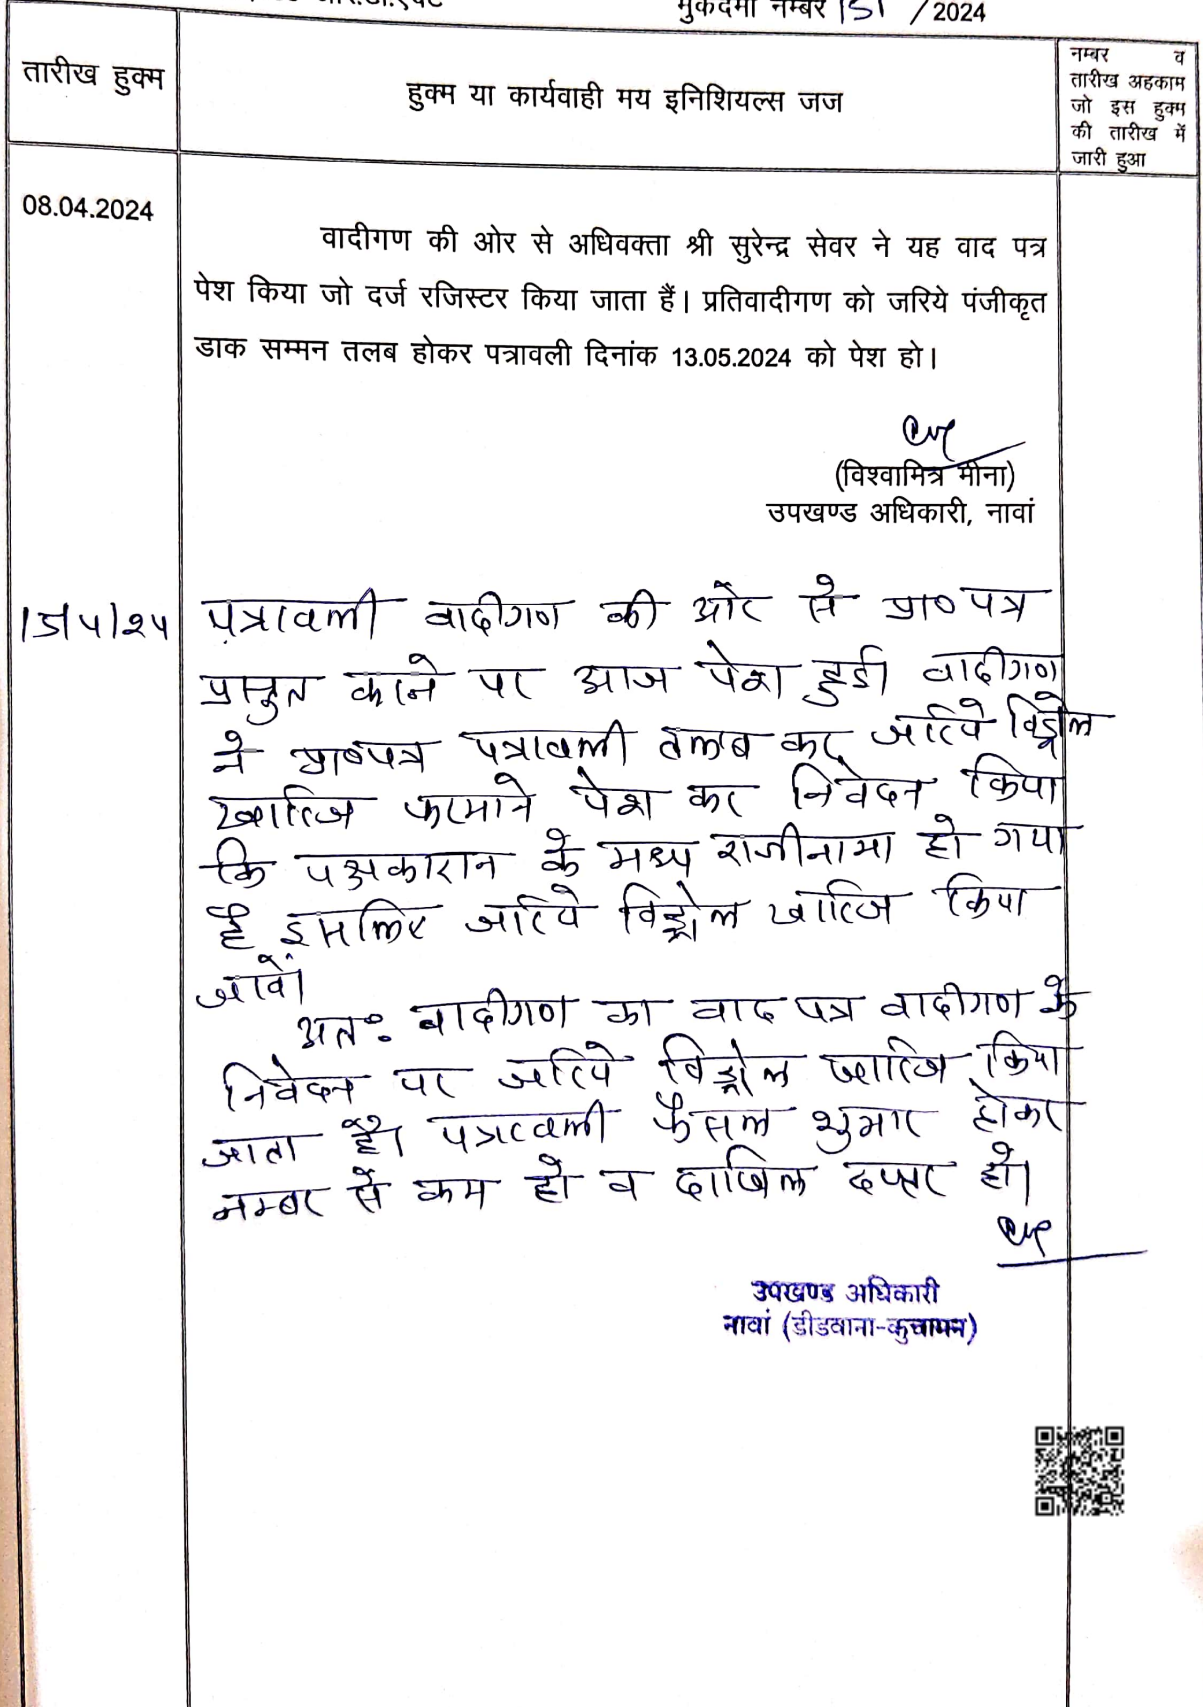 मुकदमा नम्बर 151 / 2024
तारीख हुक्म
हुक्म या कार्यवाही मय इनिशियल्स जज
नम्बर व
तारीख अहकाम
जो इस हुक्म
की तारीख में
जारी हुआ
08.04.2024
वादीगण की ओर से अधिवक्ता श्री सुरेन्द्र सेवर ने यह वाद पत्र
पेश किया जो दर्ज रजिस्टर किया जाता हैं। प्रतिवादीगण को जरिये पंजीकृत
डाक सम्मन तलब होकर पत्रावली दिनांक 13.05.2024 को पेश हो।
(विश्वामित्र मीना)
उपखण्ड अधिकारी, नावां
पत्रावली वादीगण की ओर से प्रा० पत्र
प्रस्तुत करने पर आज पेश हुई। वादीगण
ने प्रा०पत्र पत्रावली तलब कर जरिये विड्रोल
खारिज फरमाने पेश कर निवेदन किया
कि पक्षकारान के मध्य राजीनामा हो गया
है इसलिए जरिये विड्रोल खारिज किया
जावें।
अतः वादीगण का वाद पत्र वादीगण के
निवेदन पर जरिये विड्रोल खारिज किया
जाता है। पत्रावली फैसल शुमार होकर
नम्बर से कम हो व दाखिल दफ्तर हो।
उपखण्ड अधिकारी
नावां (डीडवाना-कुचामन)